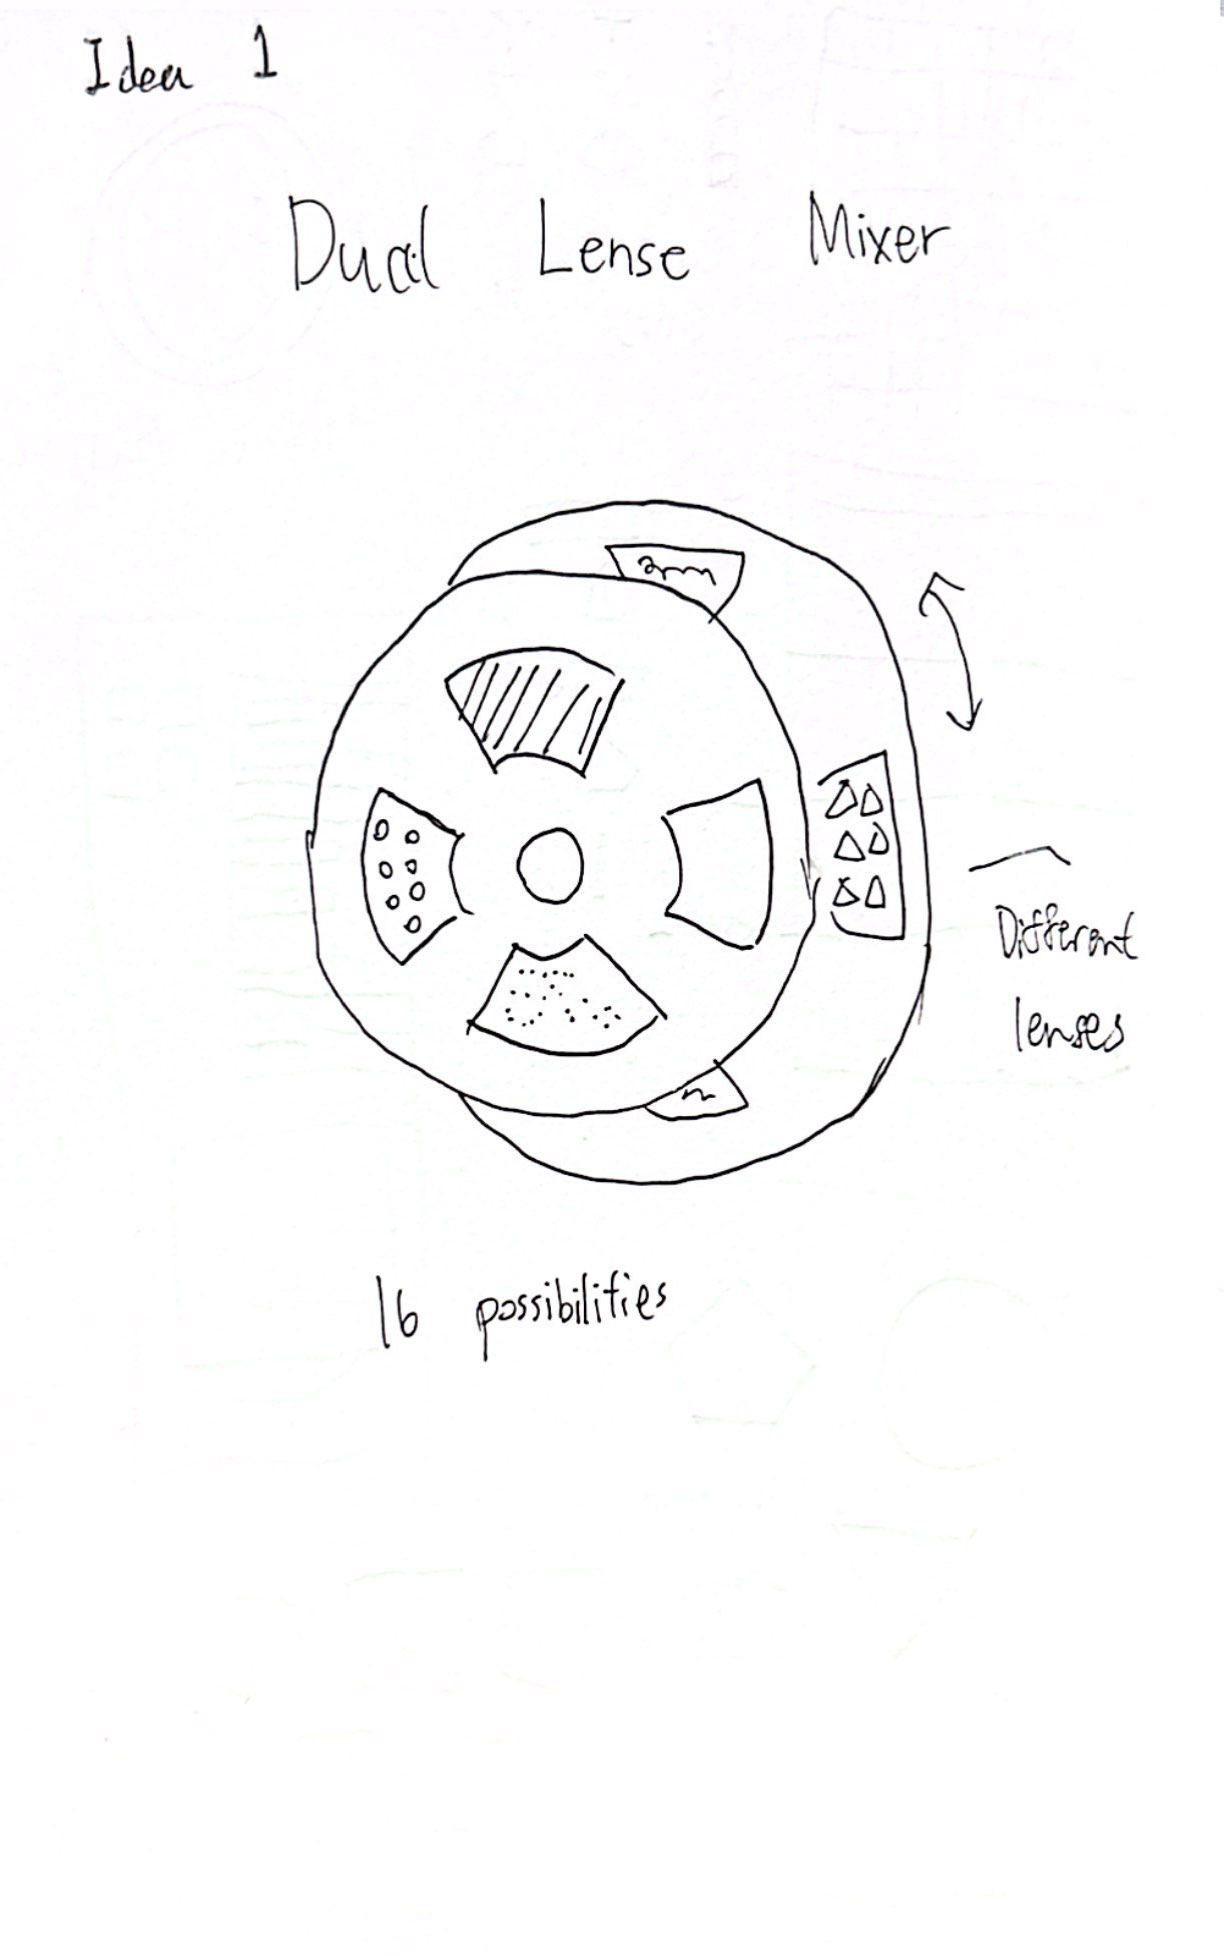 Idea 1
Dual Lense Mixer
Different
lenses
16 possibilities